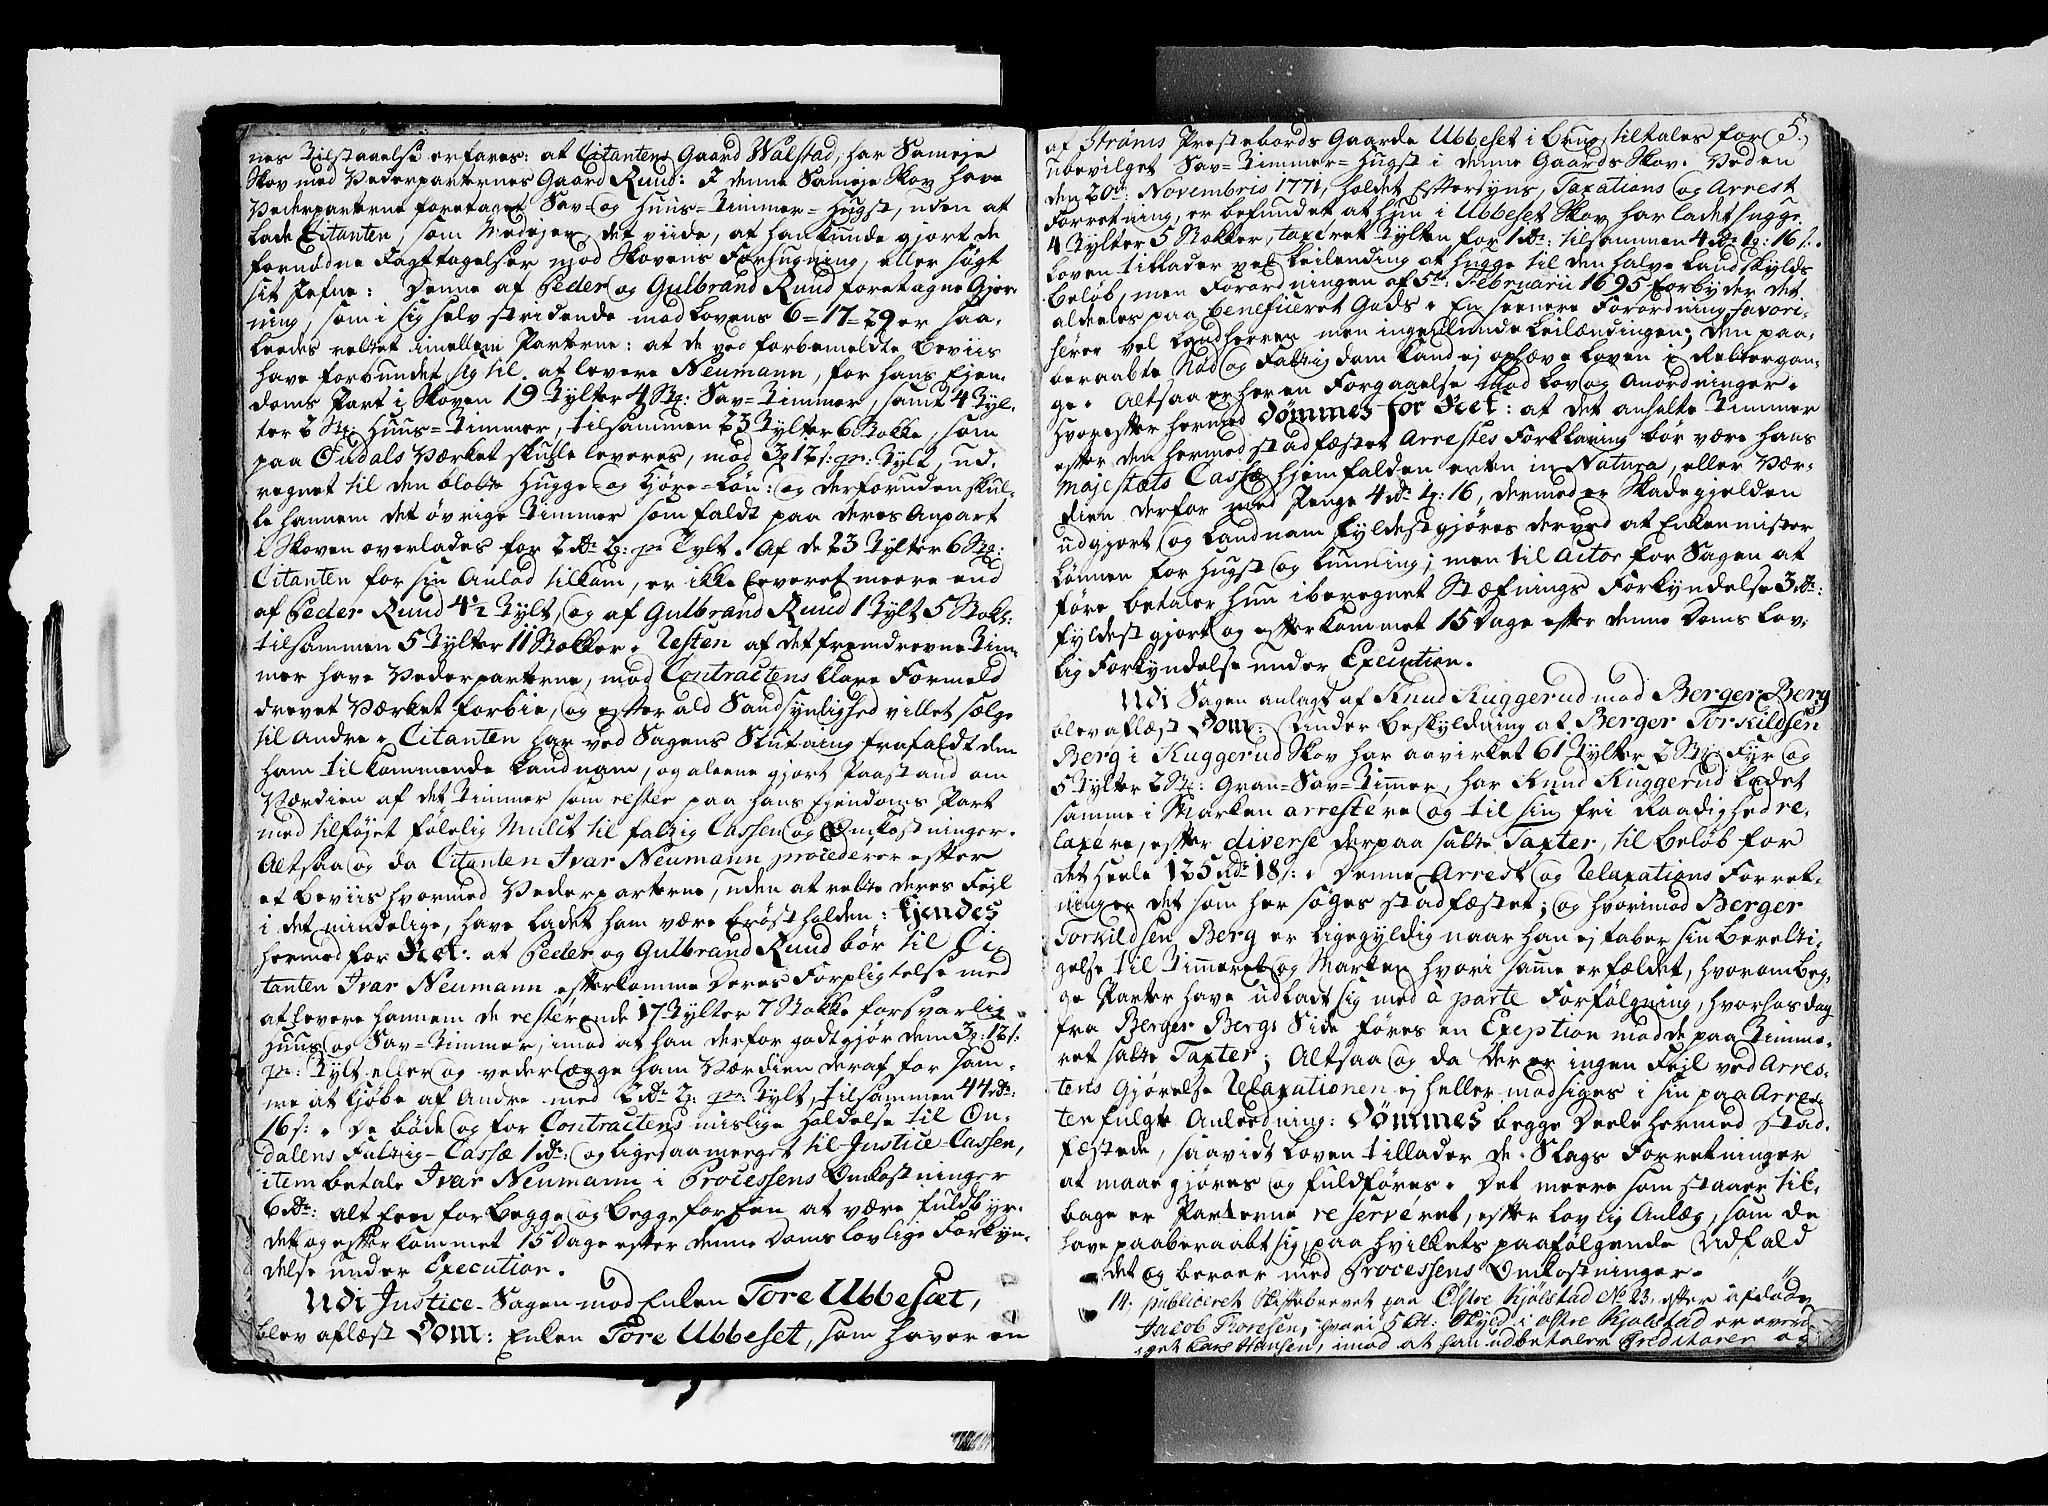 nes Tilstaaelse erfares: at Citantens Gaard Walstad, har Sameje
Skov med Vederparternes Gaard Ruud: I denne Sameje Skov have
Vederparterne foretaget Sav- og Huus-Timmer-Hugst, uden at
lade Citanten, som Medejer det viide, at han kunde gjort de
fornødne Iagttagelser mod Skovens Forhugning, eller søgt
sit Jefne: Denne af Peder og Gulbrand Ruud foretagne Gjer-
ning, som i sig selv stridende mod Lovens 6=17=29 er saa-
leedes rettet imellem Parterne: at de ved forbemeldte Beviis
have forbundet sig til at levere Neumann, for hans Ejen-
doms Part i Skoven 19 Tylter 4 St: Sav-Timmer, samt 4 Tyl-
ter 2 St: Huus-Timmer, tilsammen 23 Tylter 6 Stokke, som
paa Oudals Værket skulle leveres, mod 3 12 s: pr: Tylt, ud-
regnet til den blotte Hugge- og Kjøre-Løn: og derforuden skul-
le hannem det øvrige Timmer som faldt paa deres Anpart
i Skoven overlades for 2 rd 2: pr Tylt. Af de 23 Tylter 6 St:
Citanten for sin Anlod tilkom, er ikke leveret meere end
af Peder Ruud 4½ Tylt, og af Gulbrand Ruud 1 Tylt 5 Stoks:
tilsammen 5 Tylter 11 Stokker. Resten af det fremdrevne Tim-
mer have Vederparterne, mod Contractens klare Formeld
drevet Værket forbie, og efter ald Sandsynlighed villet sælge
til Andre. Citanten har ved Sagens Slutning frafaldt den
ham tilkommende Landnam, og aleene gjort Paastand om
Værdien af det Timmer som rester paa hans Ejendoms Part
med tilføjet følelig Mulct til fattig Cassen og Omkostninger.
Altsaa og da Citanten Ivar Neumann procederer efter
et Beviis hvormed Vederparterne, uden at rette deres Fejl
i det mindelige, have ladet ham være brøstholden: Kjendes
hermed for Ret: at Peder og Gulbrand Ruud bør til Ci-
tanten Ivar Neumann efterkomme Deres Forpligtelse med
at levere hannem de resterende 17 Tylter 7 Stokke forsvarlig
Huus og Sav-Timmer, imod at han derfor godtgjør dem 3: 12 s:
pr: Tylt eller og vederlægge ham Værdien deraf for sam-
me at kjøbe af Andre med 2 rd 2: pr: Tylt, tilsammen 44 rd:
16 s:. De bøde og for Contractens mislige holdelse til Ou-
dalens Fattig-Cassa 1 rd: og ligesaa meeget til Justice-Cassen,
item betale Ivar Neumann i Processens Omkostninger
6 rd: alt Een for Begge og Begge for Een at være fuldbyr-
det og efterkommet 15 Dage efter denne Doms lovlige Forkyn-
delse under Execution.
Udi Justice-Sagen mod Enken Tore Ubbeset,
blev aflæst Dom: Enken Tore Ubbeset, som haver en
5.
af Strøms Prestebords Gaarde Ubbeset i Brug, tiltales for
ubevilget Sav-Timmer-Hugst i denne Gaards Skov. Veden
den 20de Novembris 1771, holdet Eftersyns, Taxations og Arrest
Forretning, er befundet at hun i Ubbeset Skov har ladet hugge
4 Tylter 5 Stokker, taxeret Tylten for 1 rd: tilsammen 4 rd 1: 16 s:.
Loven tillader vel Leilending at hugge til den halve Landskylds
Beløb, men Forordningen af 5te Februarii 1695 forbyder det
aldeeles paa beneficeret Gods. En seenere Forordning favori-
serer vel Landherren men ingenlunde Leilændingen; Den paa-
beraabte Nød og Fattigdom kand ej ophæve Loven i Rettergan-
ge. Altsaa er heren Forgaaelse mod Lov og Anordninger.
Hvorefter hermed Dømmes for Ret: at det anholte Timmer
efter den hermed stadfæstet Arrestes Forklaring bør være Hans
Majestæts Cassa hjemfalden enten in Natura, eller Vær-
dien derfor med Penge 4 rd 1: 16, dermed er Skadegjelden
udgjort og Landnam fyldestgjøres derved at Enken mister
Lønnen for Hugst og Lunning; men til Actor for Sagen at
føre betaler hun iberegnet Stæfnings Forkyndelse 3 rd:
fyldestgjort og efterkommet 15 Dage efter denne Doms Lov-
lig Forkyndelse under Execution.
Udi Sagen anlagt af Knud Kuggerud mod Berger Berg
blev aflæst Dom: Under Beskyldning at Berger Torkildsen
Berg i Kuggerud Skov har aavirket 61 Tylter 2 St: Fyr og
5 Tylter 2 St: Gran-Sav-Timer, har Knud Kuggerud ladet
samme i Marken arrestere og til sin fri Raadighed re-
laxere, efter diverse derpaa satte Taxter, til Beløb for
det heele 125 rd 18 s:. Denne Arrest og Relaxations Forret-
ninger det som her søges stadfæstet; og hvorimod Berger
Torkildsen Berg er ligegyldig naar han ej taber sin Beretti-
gelse til Timeret og Marken hvori same er fældet, hvorom Beg-
ge Parter have udladt sig med à parte Forfølgning, hvorhos dog
fra Berger Bergs Side føres en Exeption mod de paa Timme-
ret satte Taxter; Altsaa og da Der er ingen Fejl ved Arres-
tens Gjørelse Relaxationen ej heller modsiges i sin paa Arres-
ten fulgte Anleedning: Dømmes begge Deele hermed stad-
fæstede, saavidt Loven tillader de Slags Forretninger
at maae gjøres og fuldføres. Det meere som staaer til-
bage er Parterne reserveret, efter lovlig Anlæg, som de
have paaberaabt sig, paa hvilkets paafølgende Udfald
det og beroer med Processens Omkostninger.
14. publiceret Skiftebrevet paa Østre Kjølstad No 23, efter afdøde
Jacob Thoresen, hvori 5 Skyld i østre Kjølstad er
Lars Hansen, imod at han udbetaler Creditorer og